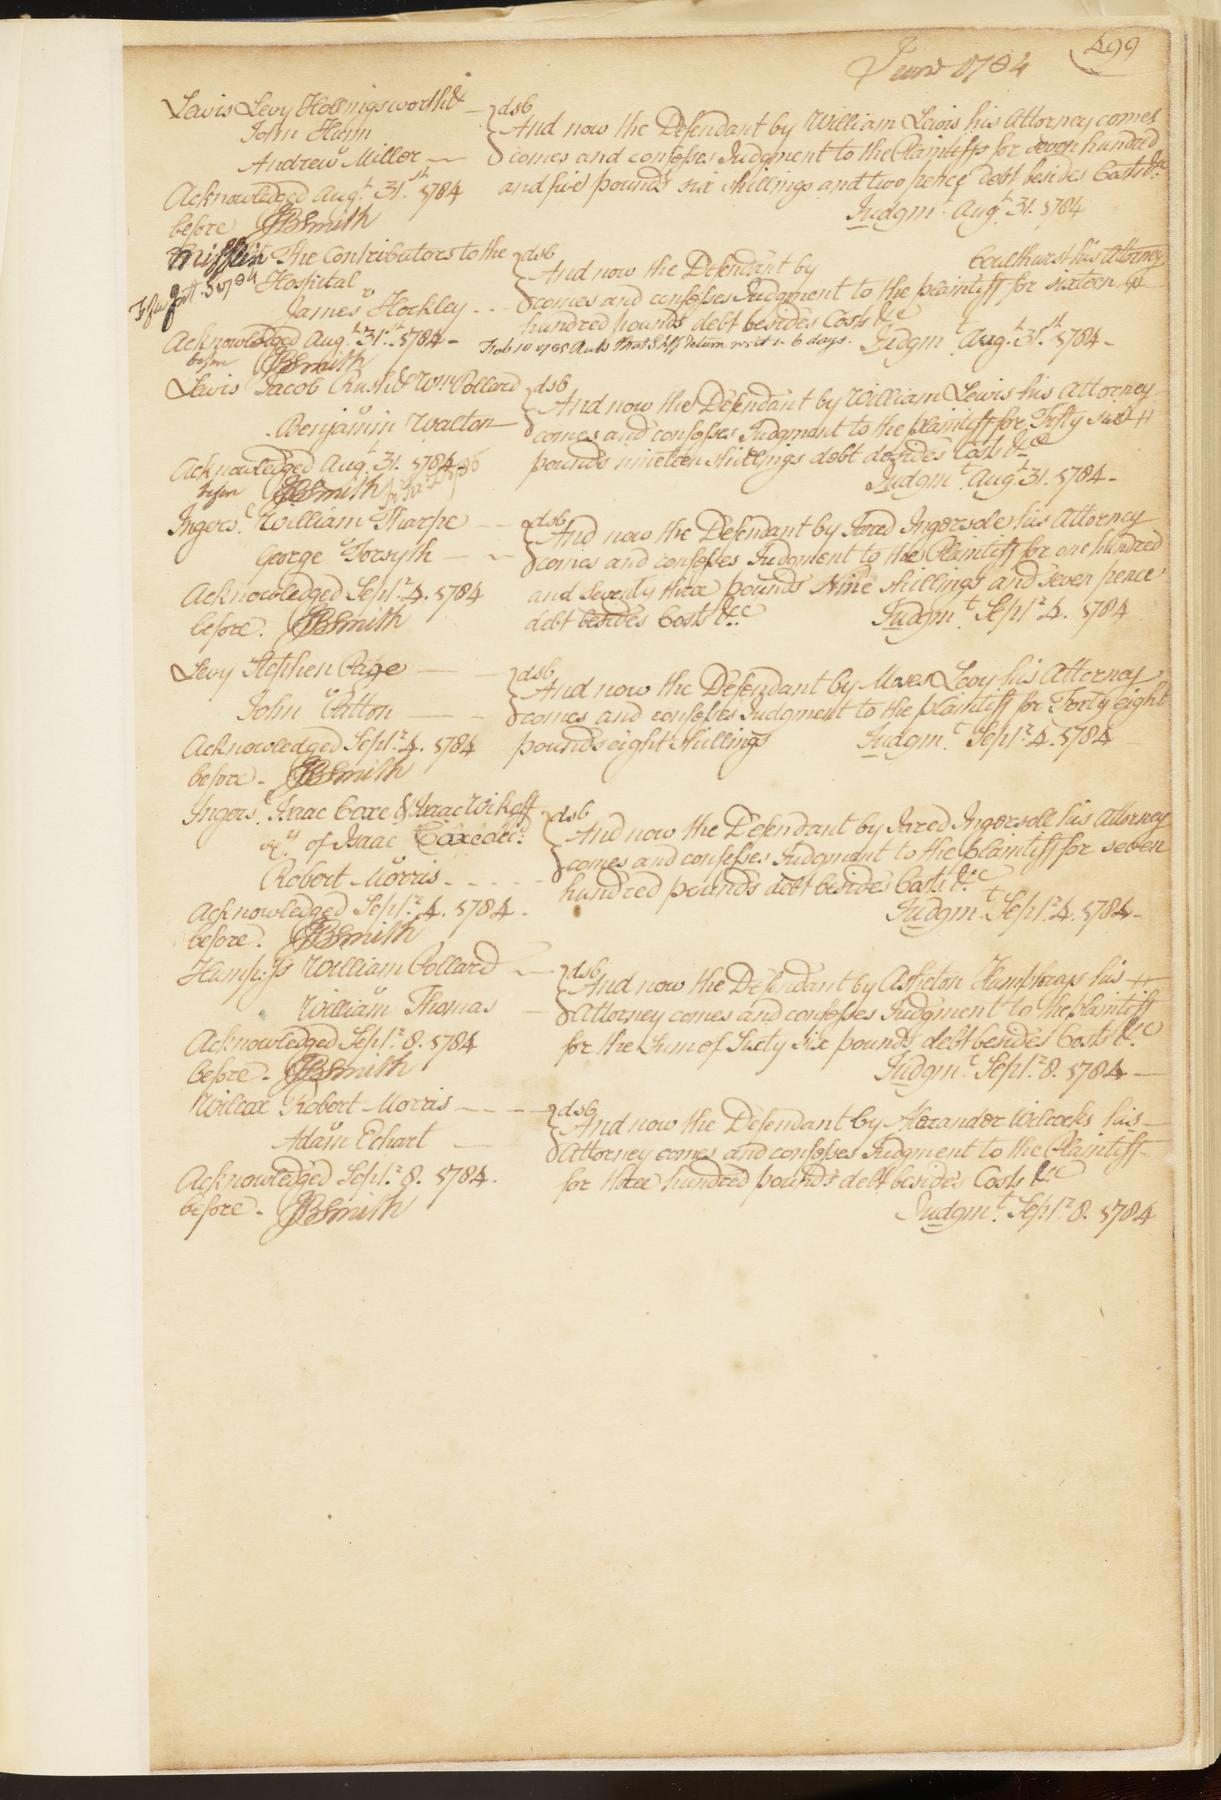 499
June 1784
Lewis Levy Hollingsworth &
John Hunn
v
Andrew Miller
Acknowledged Augt. 31st. 1784
before JBSmith
dsb
And now the Defendant by William Lewis his Attorney comes
comes and confesses Judgment to the Plaintiffs for seven hundred
and five pounds six shillings and two pence debt besides Costs &c
Judgmt. Augt. 31. 1784
Mifflin The Contributors to the
Hospital
v
James Hockley
Acknowledged Augt. 31st. 1784
before JBSmith
dsb
And now the Defendant by Coulthurst his Attorney
comes and confesses Judgment to the plaintiff for sixteen
hundred pounds debt besides Costs &c
Feb 10 1785 Shff return writ in 6 days.
Judgmt. Augt. 31st. 1784
Lewis Jacob Rush & Wm. Pollard
v
Benjamin Walton
Acknowledged Augt. 31. 1784
before JBSmith
dsb
And now the Defendant by William Lewis his Attorney
comes and confesses Judgment to the plaintiff for Fifty
pounds nineteen shillings debt besides Costs &c
Judgmt. Augt. 31. 1784
Ingers. William Tharpe
v
George Forsyth
Acknowledged Septr. 4. 1784
before. JBSmith
dsb
And now the Defendant by Jared Ingersole his Attorney
comes and confesses Judgment to the Plaintiff for one hundred
and Seventy three pounds Nine shillings and seven pence
debt besides Costs &c
Judgmt. Septr. 4. 1784
Levy Stephen Page
v
John Patton
Acknowledged Septr. 4. 1784
before. JBSmith
dsb
And now the Defendant by Moses Levy his Attorney
comes and confesses Judgment to the plaintiff for Forty eight
pounds eight shillings
Judgmt. Septr. 4. 1784
Ingers. Isaac Coxe & Isaac Wikoff
of Isaac Coxe decd.
v
Robert Morris
Acknowledged Septr. 4. 1784
before. JBSmith
dsb
And now the Defendant by Jared Ingersole his Attorney
comes and confesses Judgment to the plaintiff for seven
hundred pounds debt besides Costs &c
Judgmt. Septr. 4. 1784
Humphs William Pollard
v
William Thomas
Acknowledged Septr. 8. 1784
before. JBSmith
dsb
And now the Defendant by Asheton Humphreys his
Attorney comes and confesses Judgment to the Plaintiff
for the Sum of Sixty Six pounds debt besides Costs &c
Judgmt. Septr. 8. 1784
Wilcox Robert Morris
v
Adam Echart
Acknowledged Septr. 8. 1784.
before. JBSmith
dsb
And now the Defendant by Alexander Wilcocks his
Attorney comes and confesses Judgment to the Plaintiff
for three hundred pounds debt besides Costs &c
Judgmt. Septr. 8. 1784